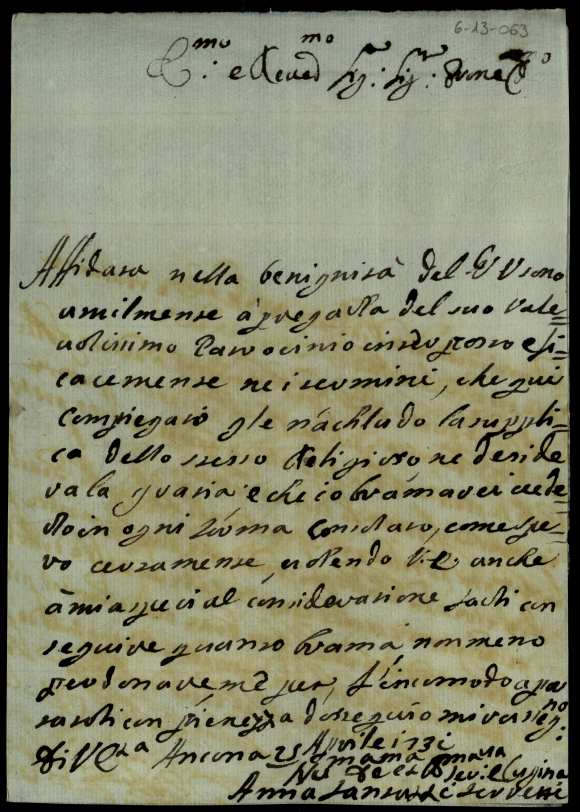 6-13-053
E.mo e Reued.mo Sig.r Sig.r Prone
Affidata nella benignità del E V sono
umilmente à pregarla del suo uale=
uolissimo Patrocinio
cacemente ne i termini, che qui
le n'achludo la suppli=
ca dello stesso Religioso, ne deside
ra la grazia, e che io bramarei ueder=
lo in ogni forma consolato, come spe=
ro certamente, uolendo V.E. anche
à mia special consideratione farli con
seguire quanto brama, non meno
perdonare mè per l'incomodo appor
tatoli con pienezza d'ossequio mi rasseg.no
Di V E.za Ancona 25 Aprile 1731
Cugina
Anna